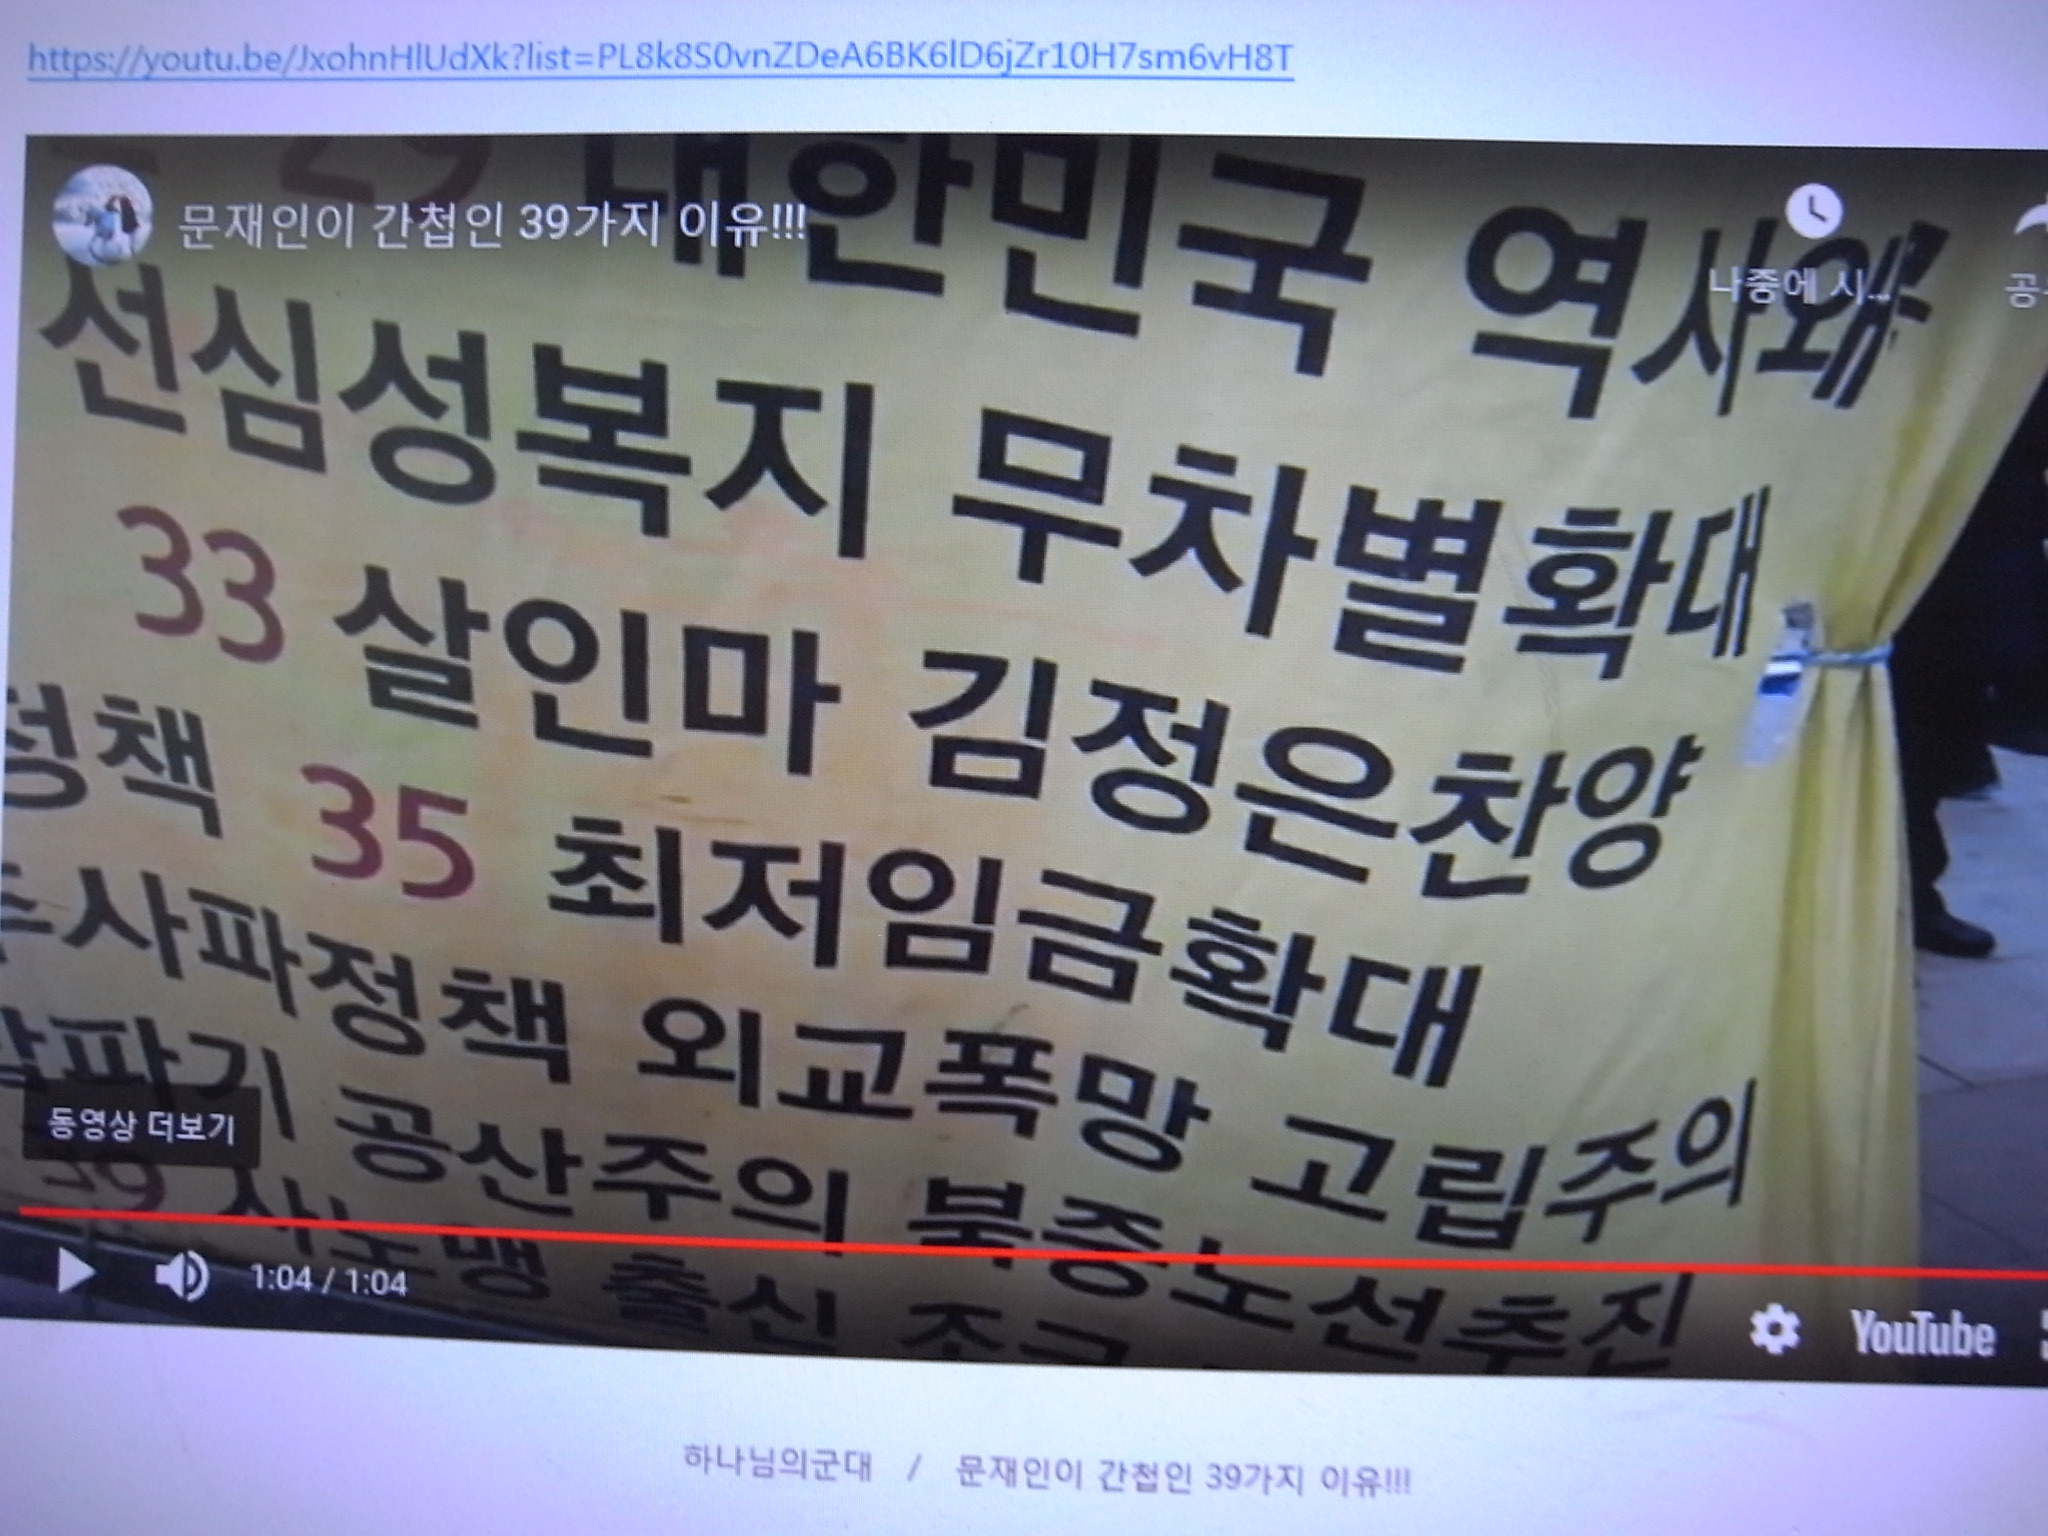 https://youtu.be/JxohnHlUdXk?list=PL8k8S0vnZDeA6BK6lD6jZr10H7sm6vH8T
문재인이 간첩인 39가지 이유!!!
나중에 시...
29 대한민국 역사왜
선심성복지 무차별확대
33 살인마 김정은찬양
정책 35 최저임금확대
주사파정책 외교폭망 고립주의
팔파기 공산주의 북중노선추진
39 사노맹 출신 조국
동영상 더보기
1:04 / 1:04
YouTube
하나님의군대 / 문재인이 간첩인 39가지 이유!!!